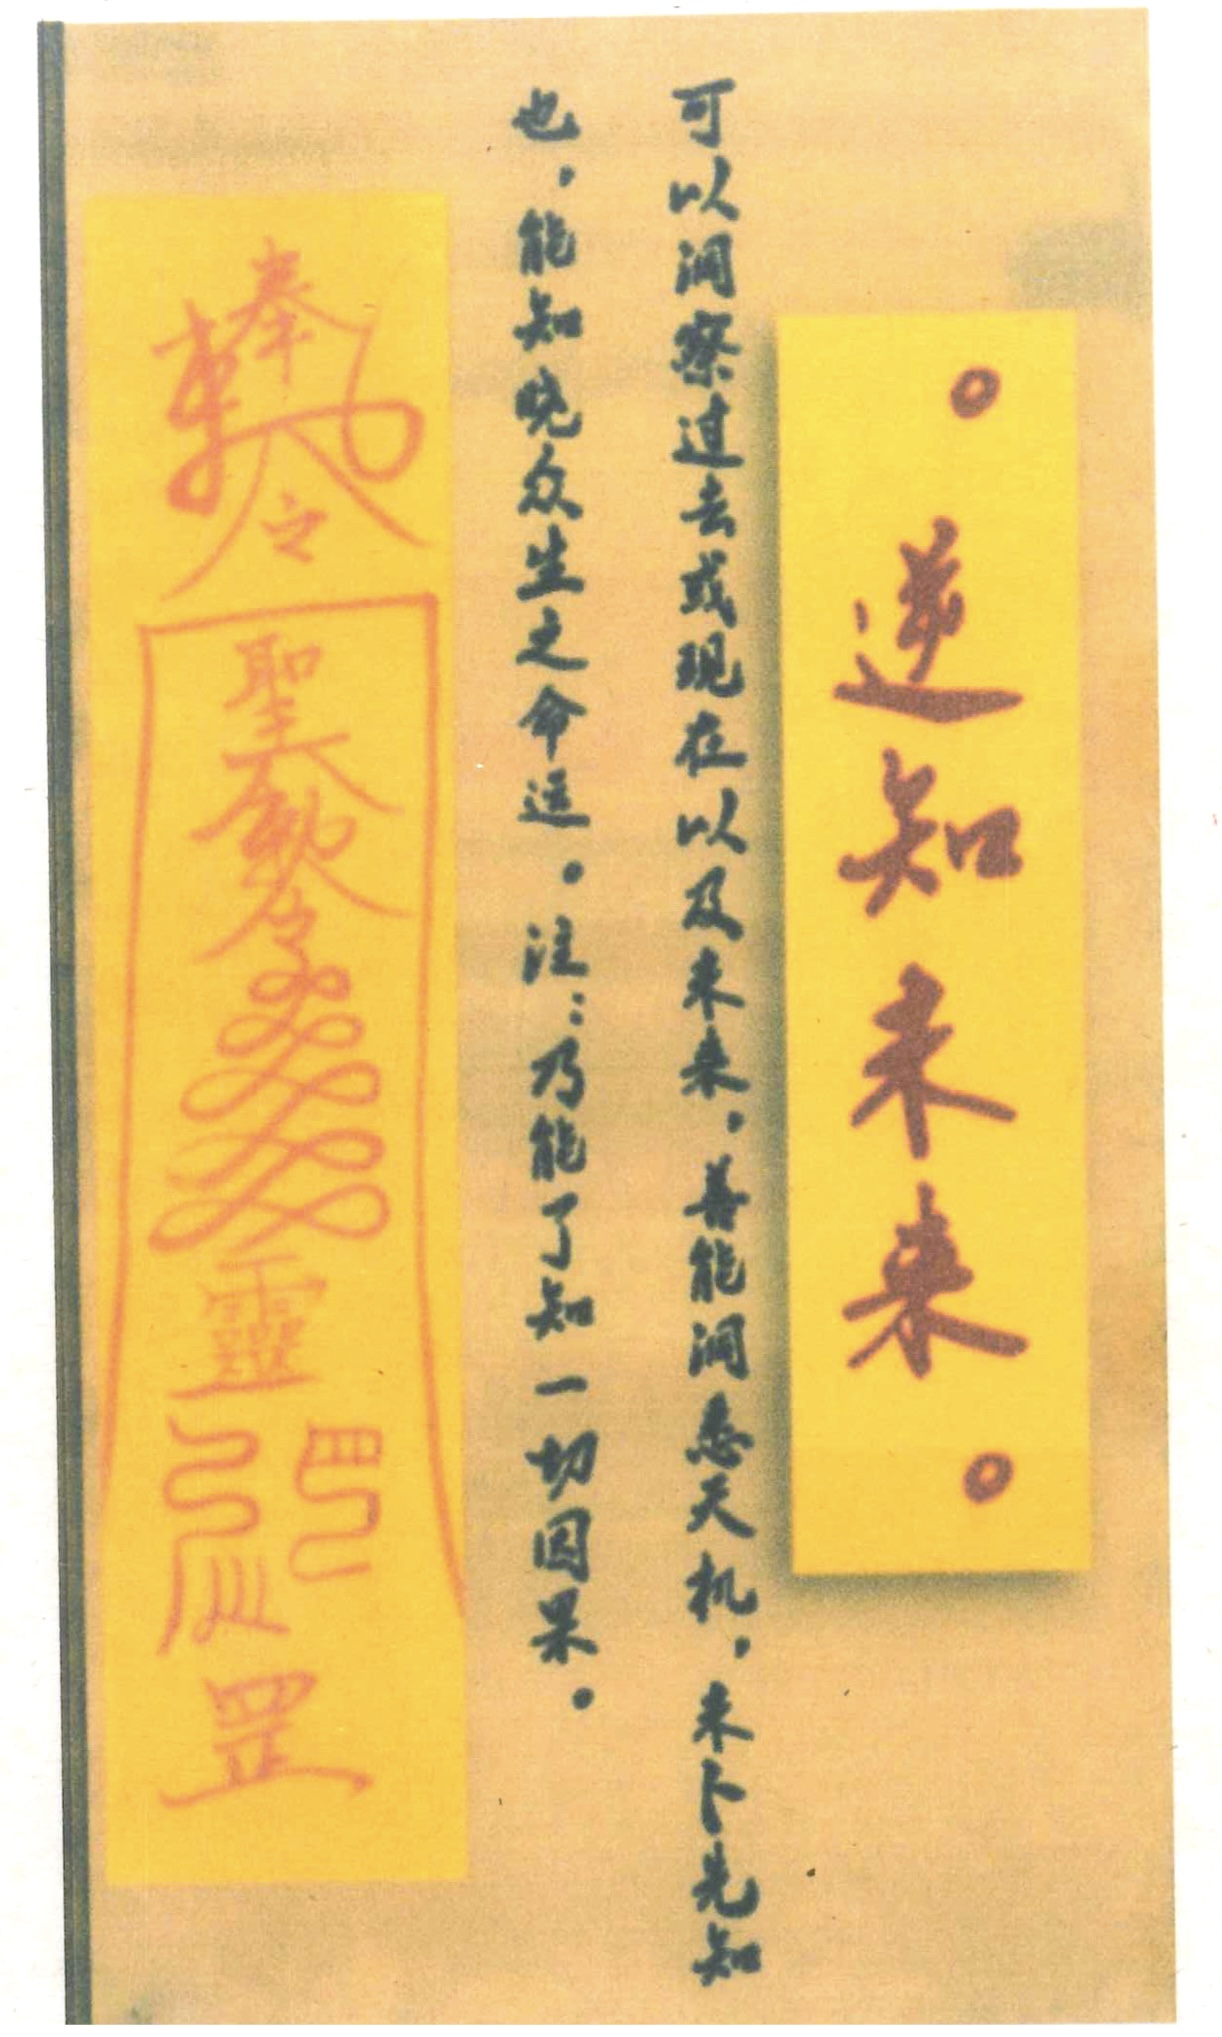 。逆知未来。
可以洞察过去或现在以及未来。善能洞悉天机，未卜先知
也，能知晓众生之命运。注：乃能了知一切因果。
奉
令
聖
令
靈
罡